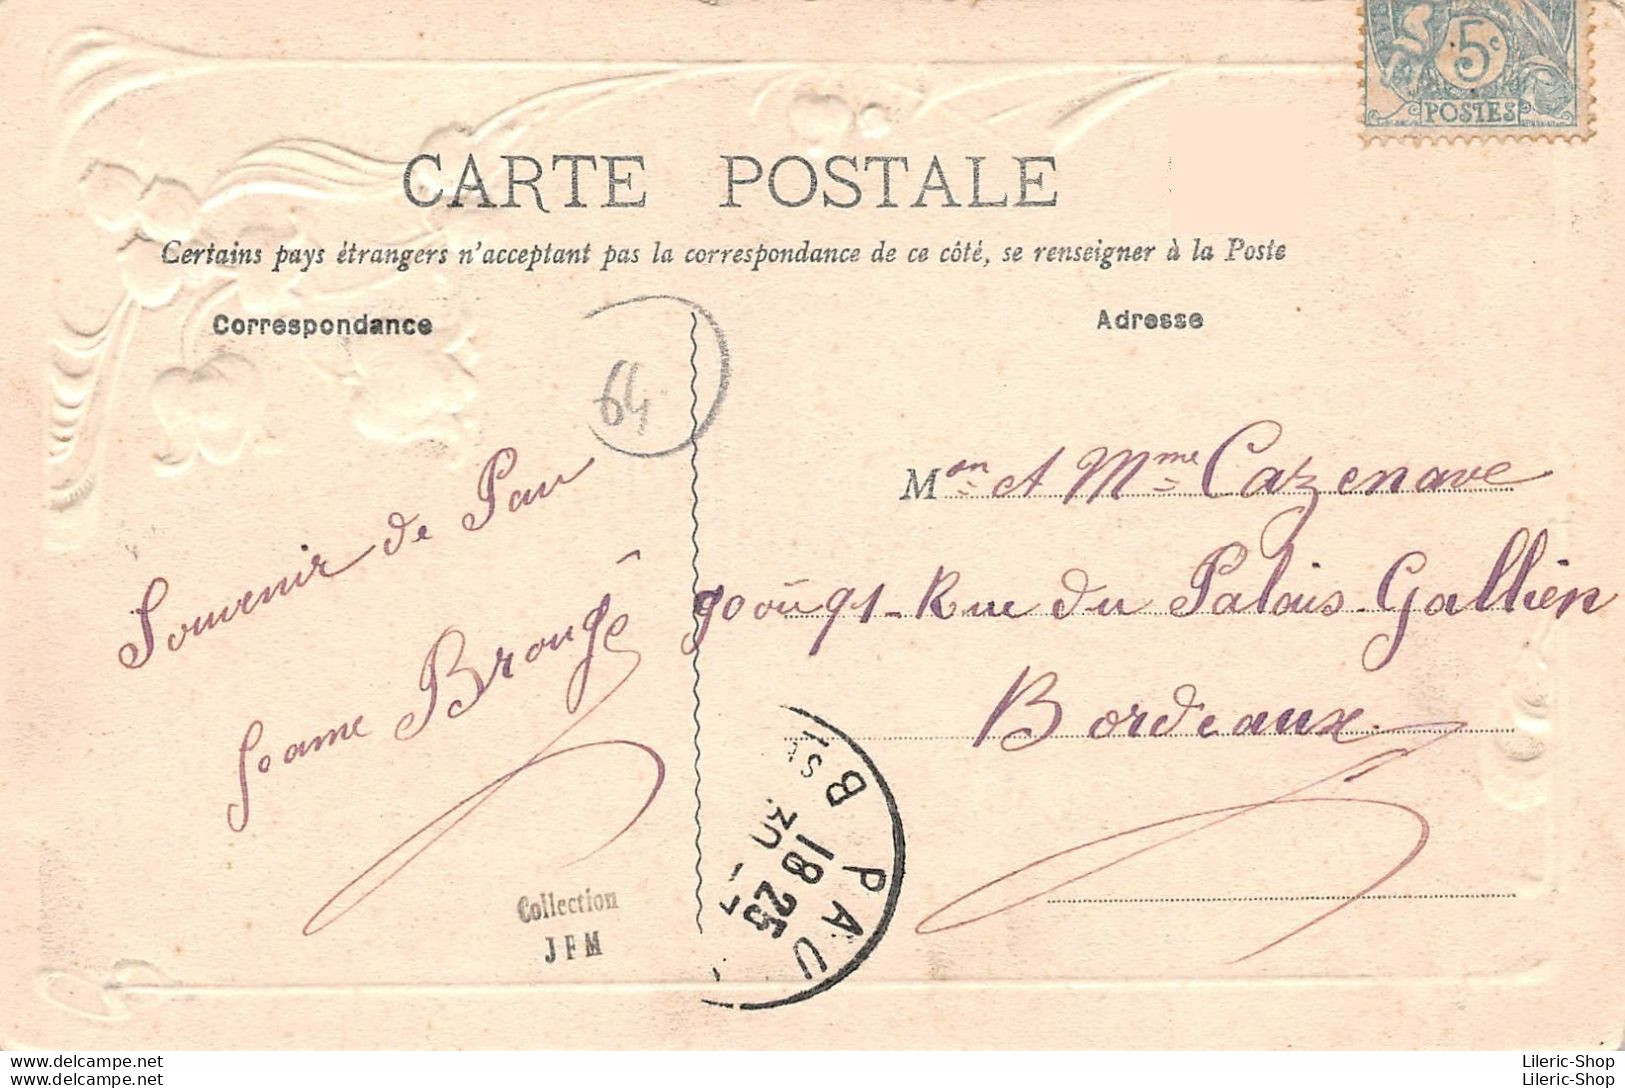 5c
POSTES
CARTE POSTALE
Certains pays étrangers n'acceptent pas la correspondance de ce côté, se renseigner à la Poste
Correspondance
Adresse
64
Souvenir de Pau
Mon et Mme Cazenave
90 où 91 - Rue du Palais-Gallien
Bordeaux
PAU
B
18 25
30
Collection
JFM
delcampe.net
delcampe.net
Lileric-Shop
Lileric-Shop